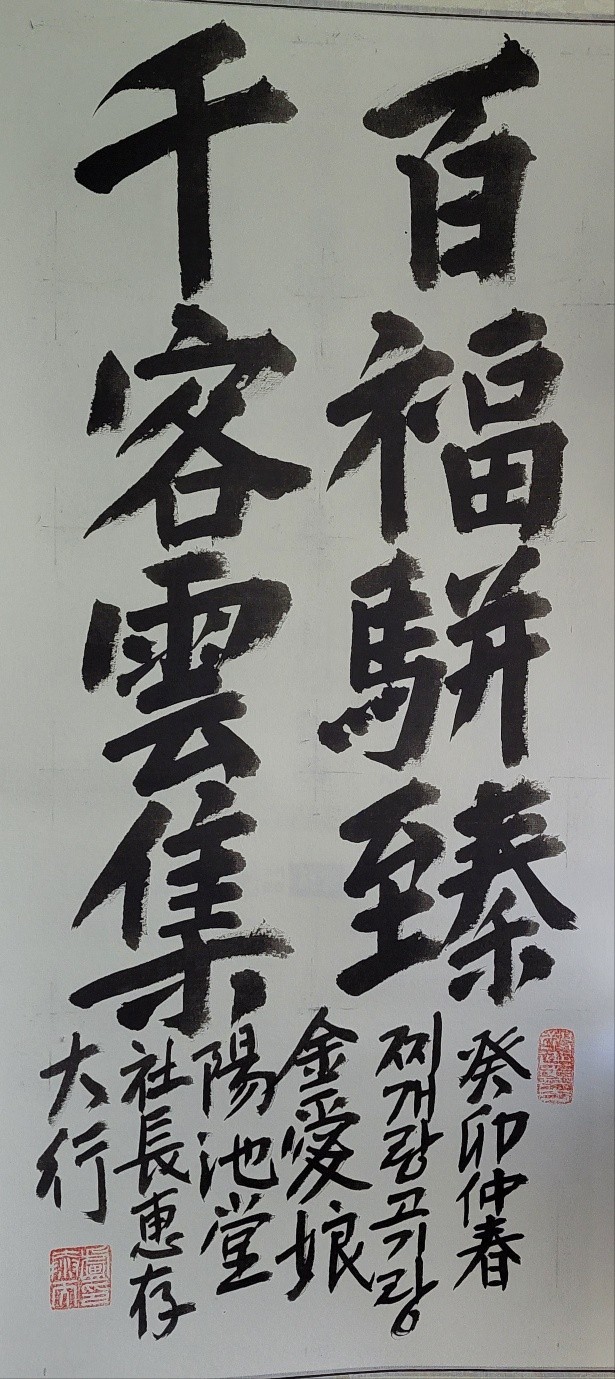 百福騈臻
千客雲集
癸卯仲春
찌개랑고기랑
金愛娘
陽池堂
社長惠存
大行